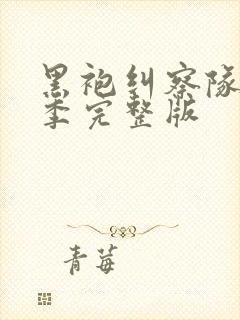 黑袍纠察队
季完整版
青莓